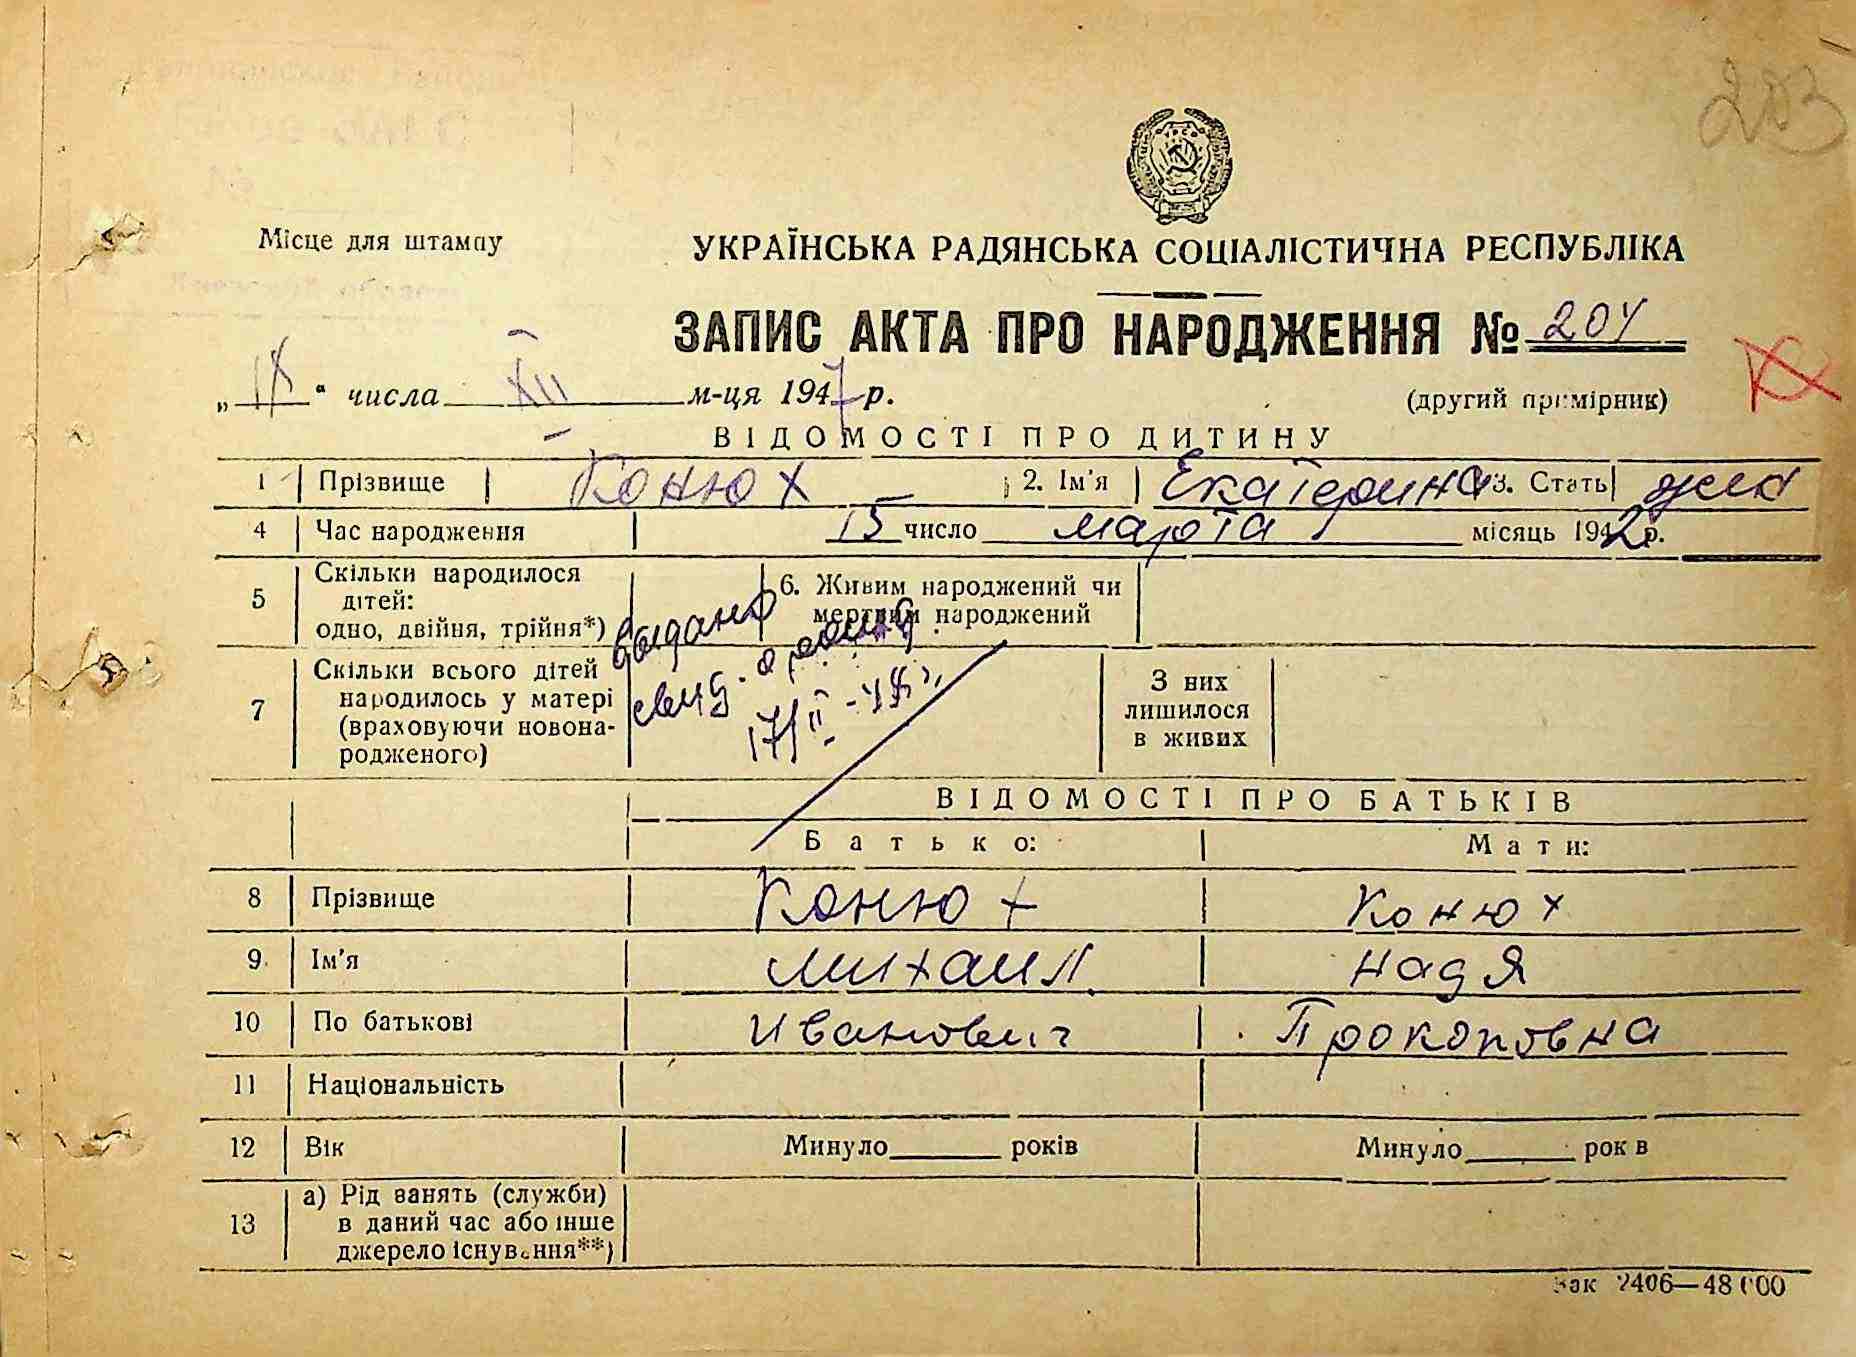 203
Місце для штампу
УКРАЇНСЬКА РАДЯНСЬКА СОЦІАЛІСТИЧНА РЕСПУБЛІКА
ЗАПИС АКТА ПРО НАРОДЖЕННЯ № 204
„IX“ числа XII м-ця 1947 р.
(другий примірник)
ВІДОМОСТІ ПРО ДИТИНУ
1 Прізвище Конюх 2. Ім'я Екатерина 3. Стать жен
4 Час народження 15 число марта місяць 1942 р.
5 Скільки народилося дітей: одно, двійня, трійня*)
6. Живим народжений чи мертвим народжений
выдано
свид. о рожд
17/II-48 г.
7 Скільки всього дітей народилось у матері (враховуючи новонародженого)
З них лишилося в живих
ВІДОМОСТІ ПРО БАТЬКІВ
Батько: Мати:
8 Прізвище Конюх Конюх
9 Ім'я Михаил Надя
10 По батькові Иванович Прокоповна
11 Національність
12 Вік Минуло років Минуло рок в
13 а) Рід занять (служби) в даний час або інше джерело існування**)
Зак 2406—48 000